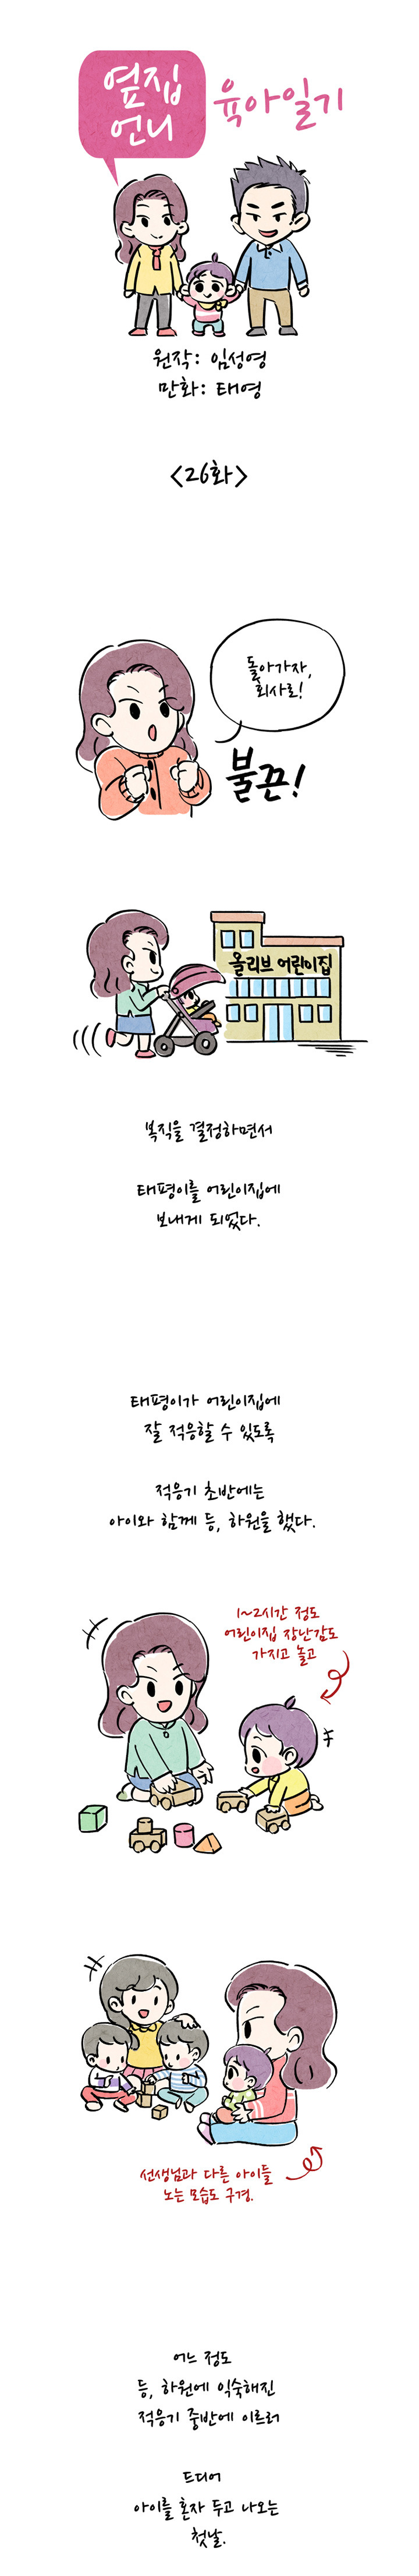 옆집
언니
육아일기
원작: 임성영
만화: 태영
<26화>
돌아가자,
회사로!
불끈!
올리브 어린이집
복직을 결정하면서
태평이를 어린이집에
보내게 되었다.
태평이가 어린이집에
잘 적응할 수 있도록
적응기 초반에는
아이와 함께 등, 하원을 했다.
1~2시간 정도
어린이집 장난감도
가지고 놀고
선생님과 다른 아이들
노는 모습도 구경.
어느 정도
등, 하원에 익숙해진
적응기 중반에 이르러
드디어
아이를 혼자 두고 나오는
첫날.